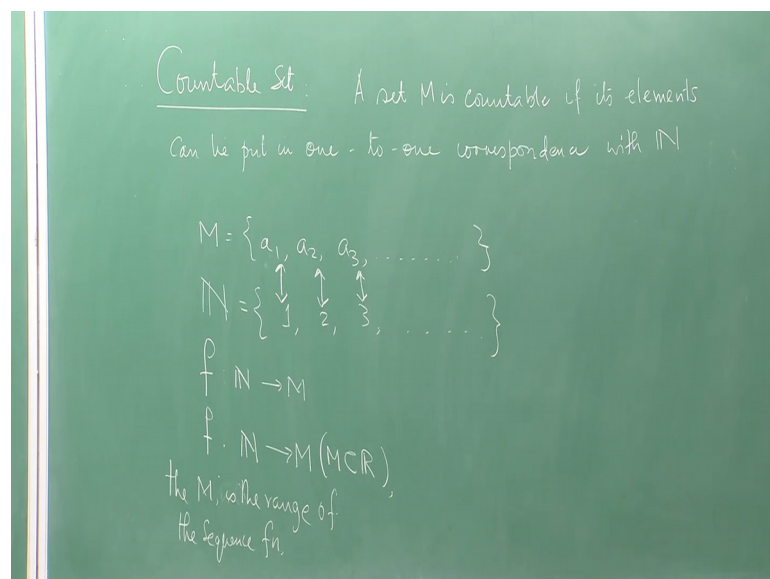 Countable Set: A set M is countable if its elements
can be put in one-to-one correspondence with ℕ
M = { a₁, a₂, a₃, ........ }
↕ ↕ ↕
ℕ = { 1, 2, 3, ....... }
f ℕ → M
f. ℕ → M (M⊂ℝ),
the M, is the range of
the Sequence fn.